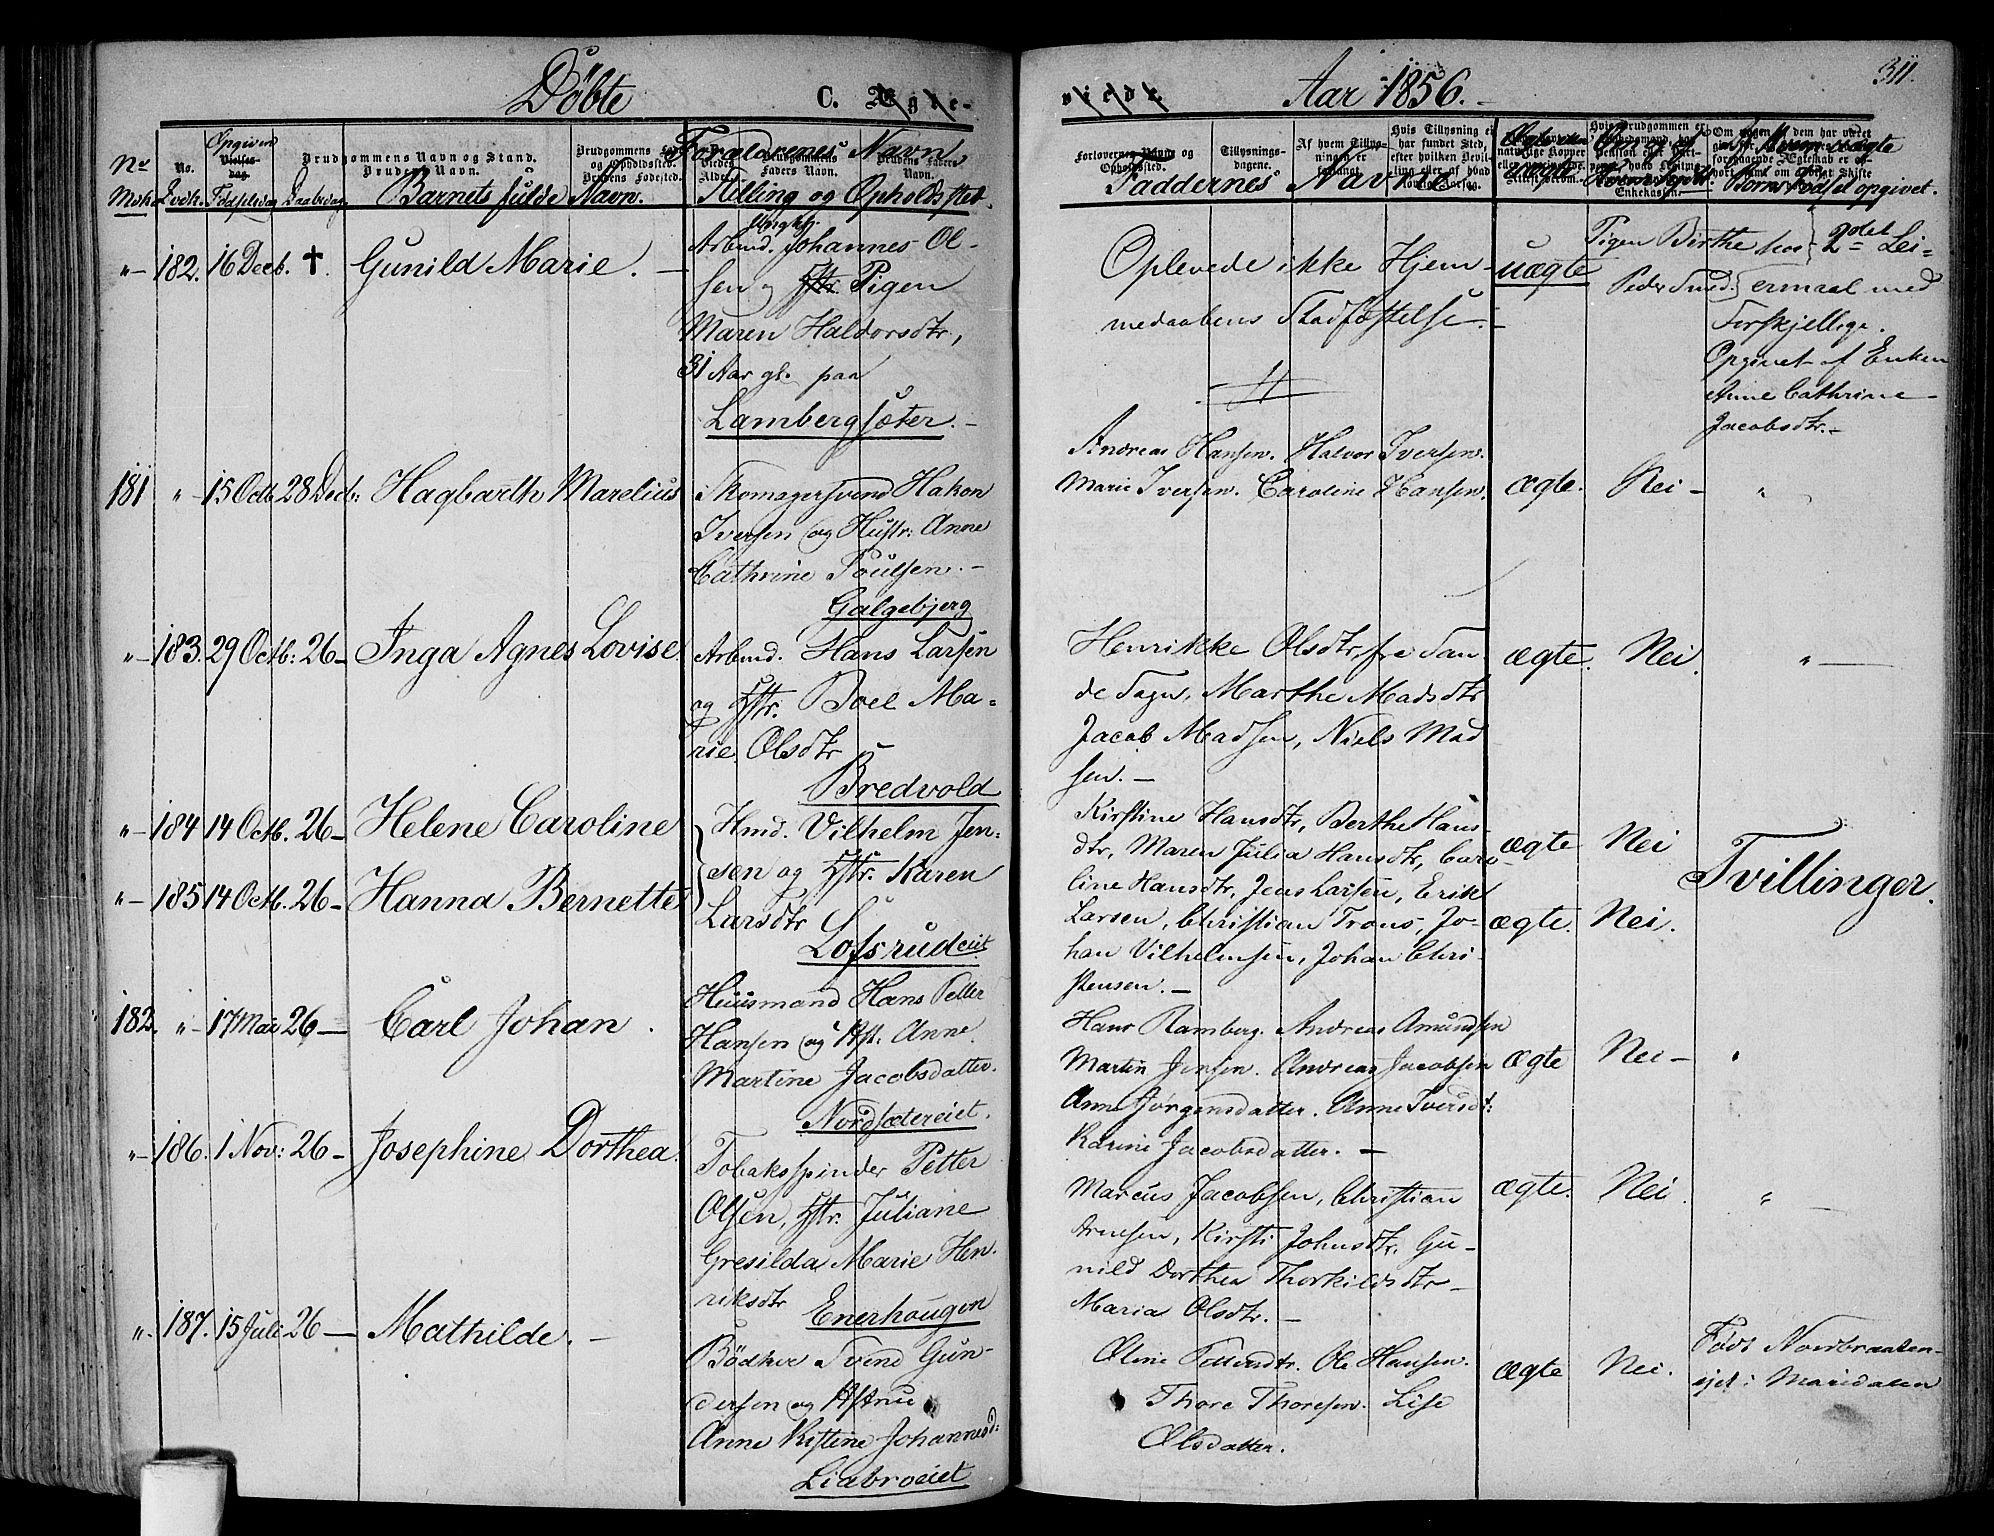 Döbte
C. Ægte-
viede.
Aar 1856.
311.
Nr
Mnk.
No.
Qvik.
Opgiven
Vielses-
dag.
Födselsdag
Daabsdag
Brudgommens Navn og Stand.
Brudens Navn.
Barnets fulde Navn.
Brudgommens Fødested
og Opholdssted.
Brudens Fødested.
Forældrenes Navn
Stilling og Opholdsted.
Faddernes Navne
uægte
opgivet.
"- 182. 16 Decb. † . Gunild Marie. —
Ungk.
Arbmd. Johannes Ol-
sen og Hstr. Pigen
Maren Haldorsdtr,
31 Aar gl. paa
Lambergsæter. -
Oplevede ikke Hjem-
medaabens Stadfæstelse. -
uægte
Pigen Birthe hos
Peder Smed.
2det Lei-
ermaal med
Forskjellige.
Opgivet af Enken
Anne Cathrine
Jacobsdtr. -
181 " 15 Octb. 28 Decb: Hagbarth Marelius
Skomagersvend Hakon
Iversen og Hustr: Anne
Cathrine Poulsen. -
Galgebjerg
Andreas Hansen. Halvor Iversen.
Marie Iversen. Caroline Hansen.
ægte. Nei - "
"- 183. 29 Octb: 26 - Inga Agnes Lovise.
Arbmd. Hans Larsen
og Hstr. Boel Ma-
rie Olsdtr
Bredvold
Henrikke Olsdtr, fra San
de Sogn, Marthe Madsdtr
Jacob Madsen, Niels Mad
sen. -
ægte. Nei. " -
"- 184 14 Octb. 26 - Helene Caroline
"- 185 14 Octb. 26 - Hanna Bernette
Hmd. Vilhelm Jen-
sen og Hstr. Karen
Larsdtr
Lofsrudeiet
Kirstine Hansdtr, Berthe Hans-
dtr, Maren Julia Hansdtr, Caro-
line Hansdtr, Jens Larsen, Erik
Larsen, Christian Trons, Jo-
han Vilhelmsen, Johan Chri-
stensen. -
ægte Nei
ægte. Nei.
Tvillinger.
182. " 17 Mai 26 — Carl Johan.
Huusmand Hans Petter
Hansen og Hst: Anne
Martine Jacobsdatter.
Nordsætereiet.
Hans Ramberg. Andreas Amundsen
Martin Jensen. Andreas Jacobsen
Anne Jörgensdatter. Anne Iversdt:
Karine Jacobsdatter. -
ægte Nei - "
"- 186. 1 Nov: 26 - Josephine Dorthea.
Tobaksspinder Petter
Olsen, Hstr. Juliane
Gresilda Marie Hen-
riksdtr Enerhougen
Marcus Jacobsen, Christian
Arnesen, Kirsti Johnsdtr. Gu-
nild Dorthea Thorkildsdtr
Maria Olsdtr. -
ægte. Nei. "
". 187. 15 Juli 26 — Mathilde. -
Bödker Svend Gun-
dersen og Hstrue
Anne Kistine Johannesd:
Liabroeiet
Oline Pettersdtr. Ole Hansen.
Thore Thoresen. Lise
Olsdatter.
ægte Nei.
Födt Nordbraaten-
ejet i Maridalen